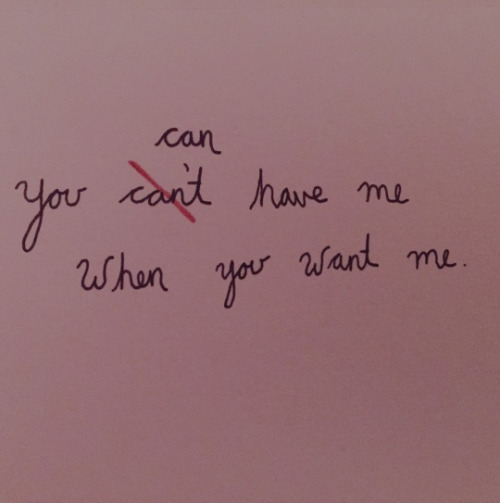 can
You can't have me
When you want me.